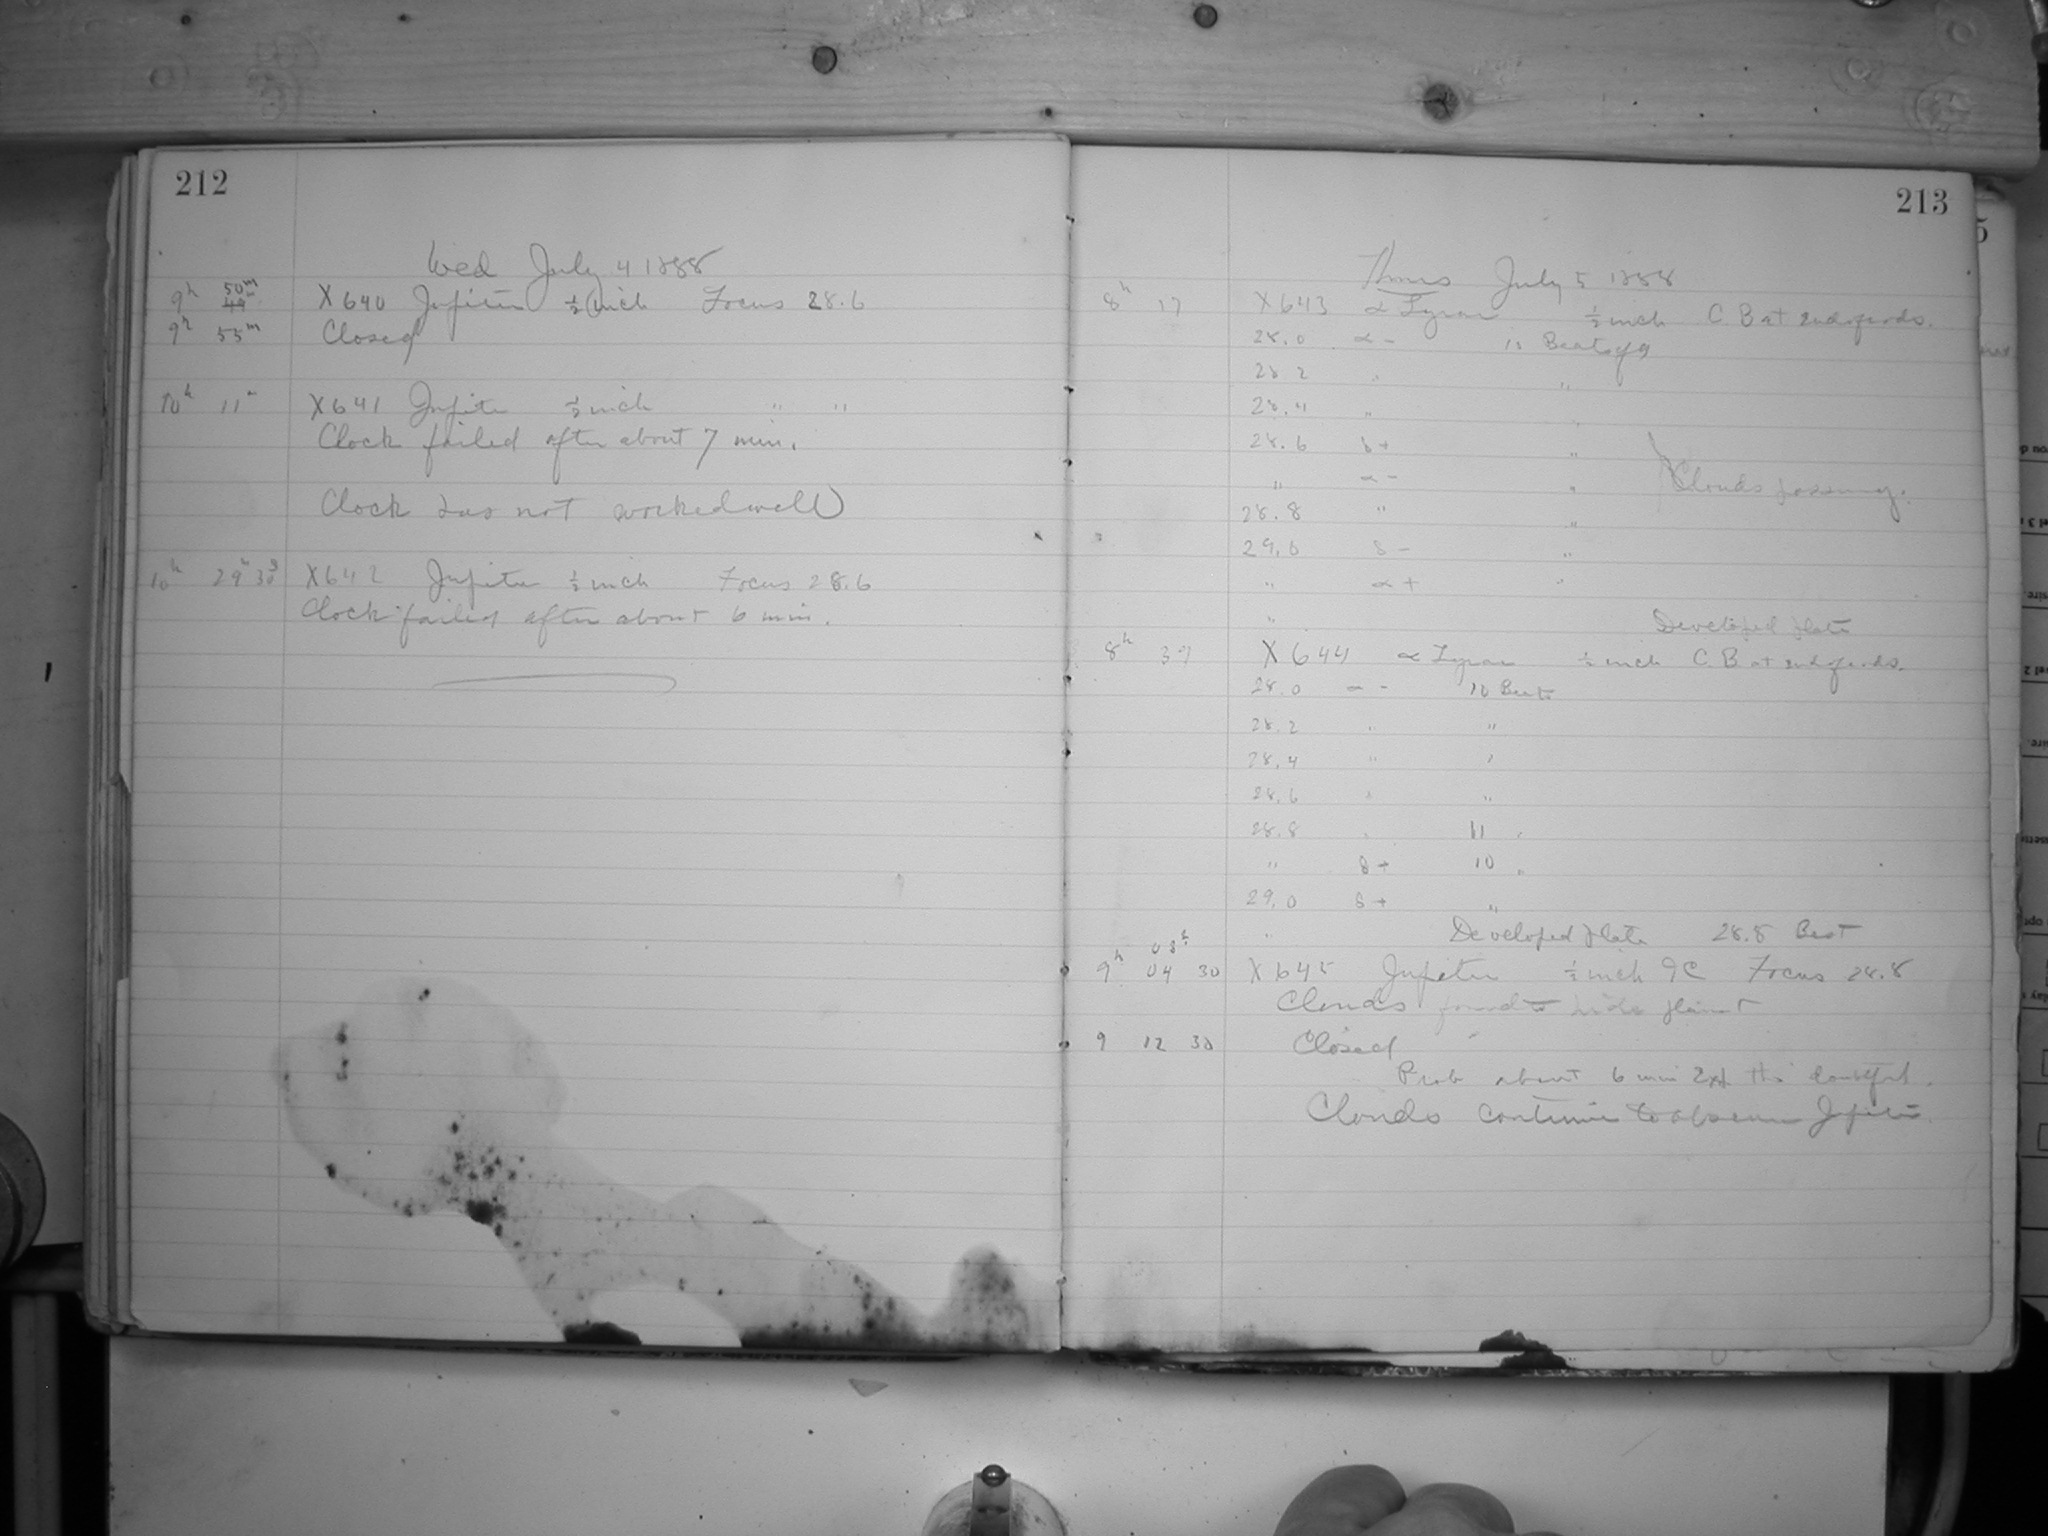 212
Wed July 4 1888
9h 50m X640 Jupiter ½ inch Focus 28.6
9h 55m Closed
10h 11m X641 Jupiter ½ inch " "
Clock failed after about 7 min.
Clock has not worked well
10h 29m 30s X642 Jupiter ½ inch Focus 28.6
Clock failed after about 6 min.
213
Thurs July 5 1888
8h 17 X643 α Lyrae ½ inch C. B at end of
28.0 α - 10 Beats
28.2 " "
28.4 " "
28.6 δ + "
" α - " Clouds passing.
28.8 " "
29.0 δ - "
" α + "
" Developed plate
8h 39 X644 α Lyrae ½ inch C. B at end of
28.0 α - 10 Beats
28.2 " "
28.4 " "
28.6 " "
28.8 " 11 "
" δ + 10 "
29.0 δ + "
" Developed plate 28.8 Best
9h 04 30 X645 Jupiter ½ inch Focus 28.8
Clouds found to hide planet
9 12 30 Closed
Prob about 6 min
Clouds continue to obscure Jupiter.